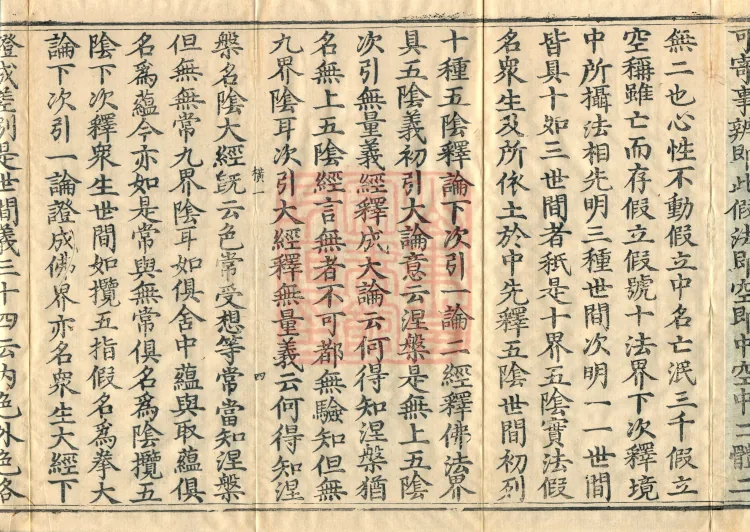 可寄事辨即此假法即空即中空中二體二
無二也心性不動假立中名亡泯三千假立
空稱雖亡而存假立假號十法界下次釋境
中所攝法相先明三種世間次明一一世間
皆具十如三世間者秖是十界五陰實法假
名眾生及所依土於中先釋五陰世間初列
十種五陰釋論下次引一論二經釋佛法界
具五陰義初引大論意云涅槃是無上五陰
次引無量義經釋成大論云何得知涅槃猶
名無上五陰經言無者不可都無驗知但無
九界陰耳次引大經釋無量義云何得知涅
橫一
四
槃名陰大經既云色常受想等常當知涅槃
但無無常九界陰耳如俱舍中蘊與取蘊俱
名為蘊今亦如是常與無常俱名為陰攬五
陰下次釋眾生世間如攬五指假名為拳大
論下次引一論證成佛界亦名眾生大經下
證成差別是世間義三十四云內色外色各